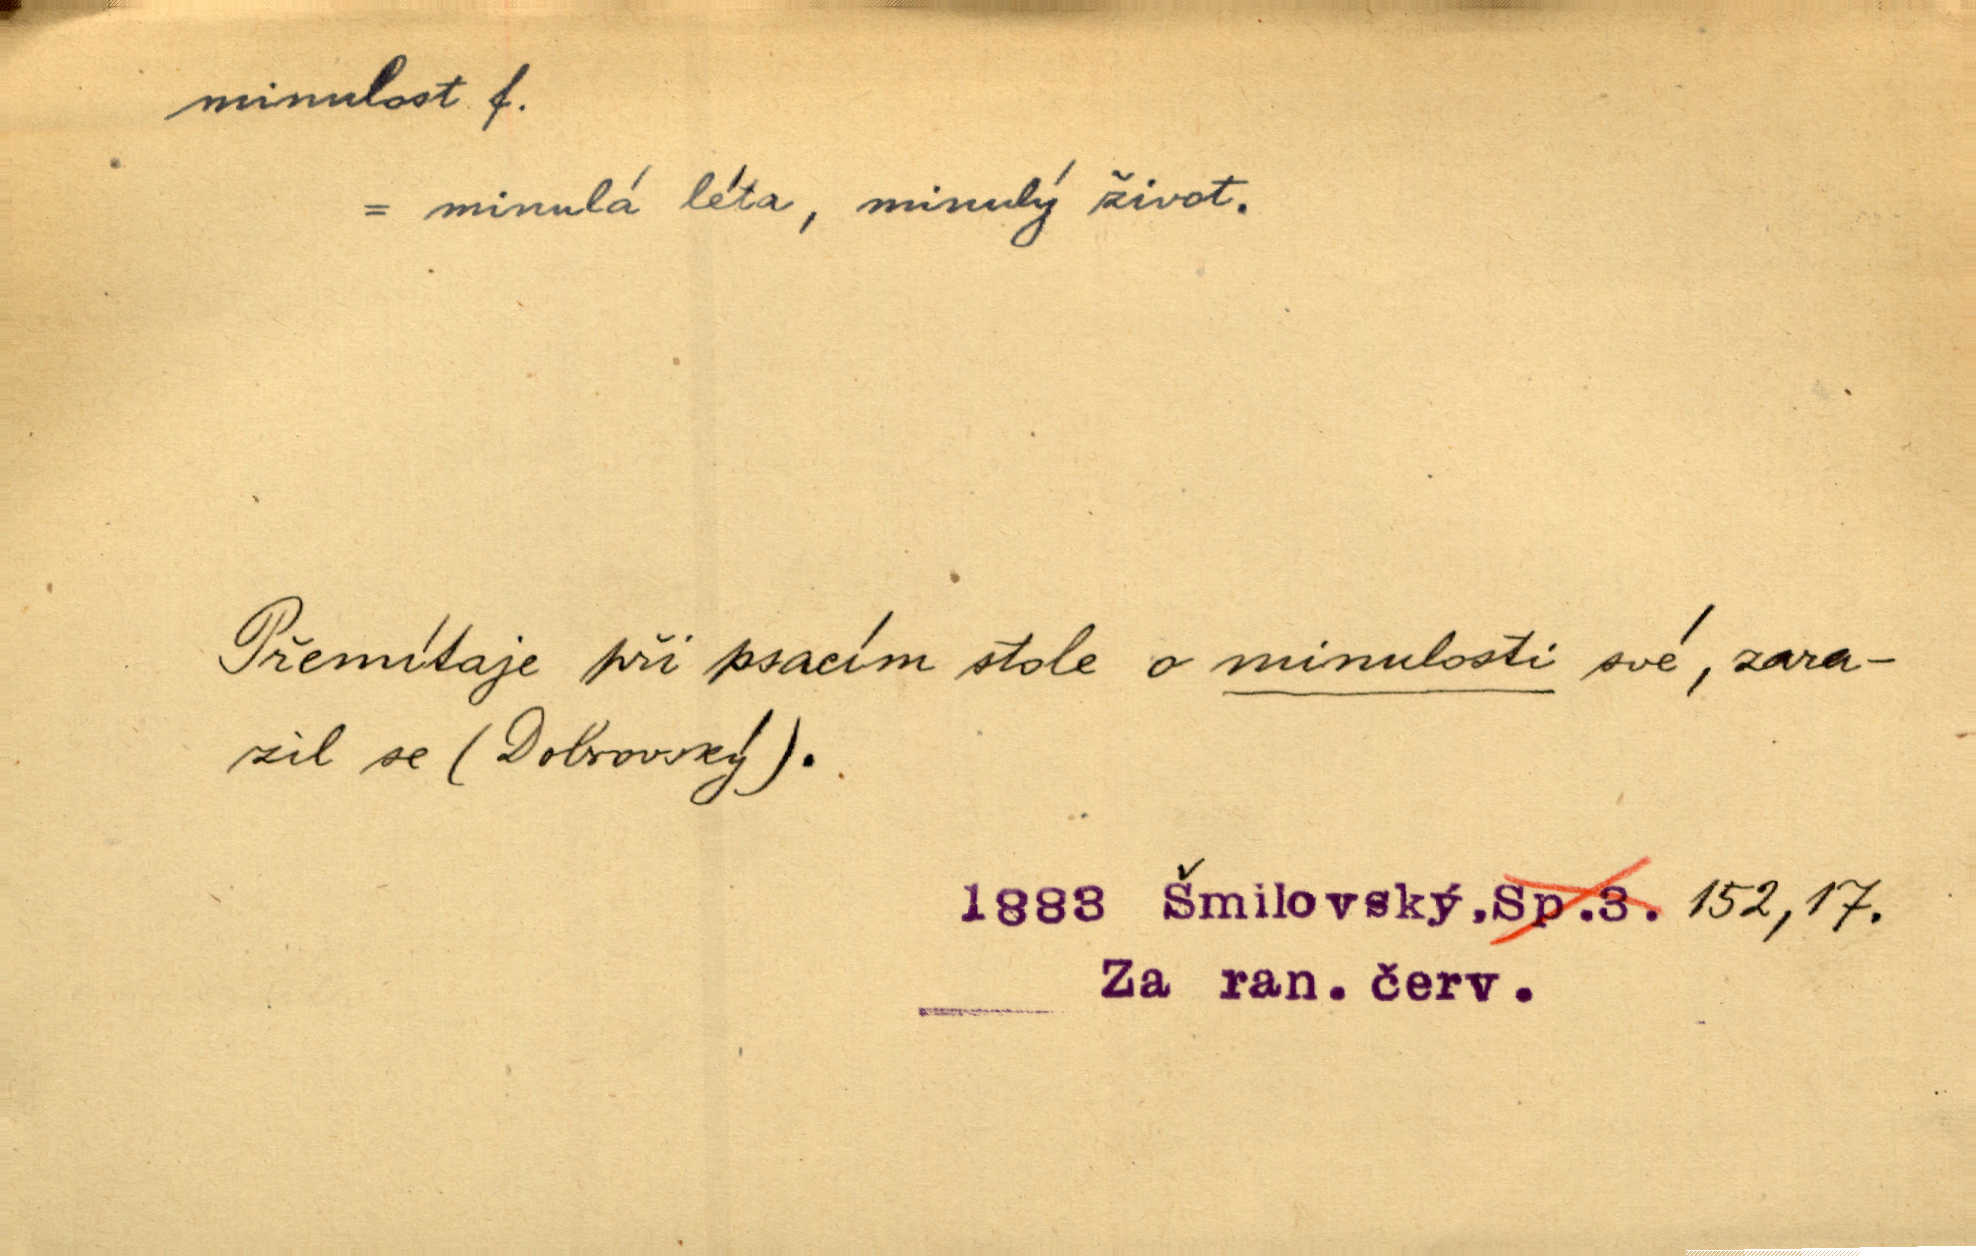 minulost f.
= minulá léta, minulý život.
Přemítaje při psacím stole o minulosti své, zara-
zil se (Dobrovský).
1883 Šmilovský.Sp.3. 152,17.
Za ran. červ.